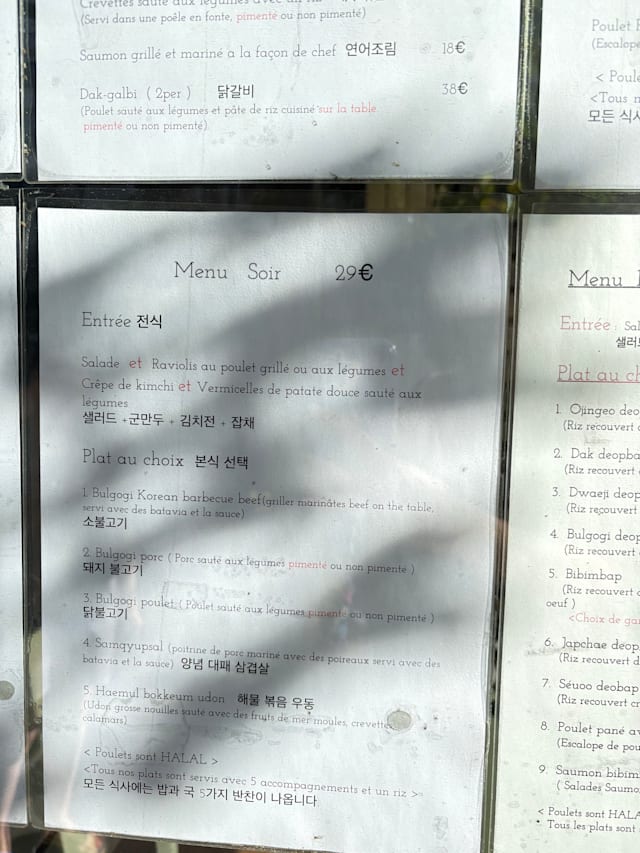 Crevettes sauté aux légumes avec un riz
(Servi dans une poêle en fonte, pimenté ou non pimenté)
Saumon grillé et mariné a la façon de chef 연어조림 18€
Dak-galbi ( 2per ) 닭갈비 38€
(Poulet sauté aux légumes et pâte de riz cuisiné sur la table.
pimenté ou non pimenté)
Menu Soir 29€
Entrée 전식
Salade et Raviolis au poulet grillé ou aux légumes et
Crêpe de kimchi et Vermicelles de patate douce sauté aux
légumes
샐러드 +군만두 + 김치전 + 잡채
Plat au choix 본식 선택
1. Bulgogi Korean barbecue beef(griller marinâtes beef on the table,
servi avec des batavia et la sauce)
소불고기
2. Bulgogi porc ( Porc sauté aux légumes pimenté ou non pimenté )
돼지 불고기
3. Bulgogi poulet ( Poulet sauté aux légumes pimenté ou non pimenté )
닭불고기
4. Samgyupsal (poitrine de porc mariné avec des poireaux servi avec des
batavia et la sauce) 양념 대패 삼겹살
5. Haemul bokkeum udon 해물 볶음 우동
(Udon grosse nouilles sauté avec des fruits de mer moules, crevette
calamars)
< Poulets sont HALAL >
<Tous nos plats sont servis avec 5 accompagnements et un riz >
모든 식사에는 밥과 국 5가지 반찬이 나옵니다
Poulet
(Escalope
< Poule
<Tous n
모든 식사
Menu
Entrée : Sal
샐러드
Plat au ch
1. Ojingeo deo
(Riz recouvert
2. Dak deopba
(Riz recouvert
3. Dwaeji deop
(Riz recouvert
4. Bulgogi deop
(Riz recouvert
5. Bibimbap
(Riz recouvert
oeuf )
<Choix de gar
6. Japchae deop
(Riz recouvert d
7. Séuoo deobap
(Riz recouvert cr
8. Poulet pané av
(Escalope de pou
9. Saumon bibim
( Salades Saumo
< Poulets sont HALA
Tous les plats sont